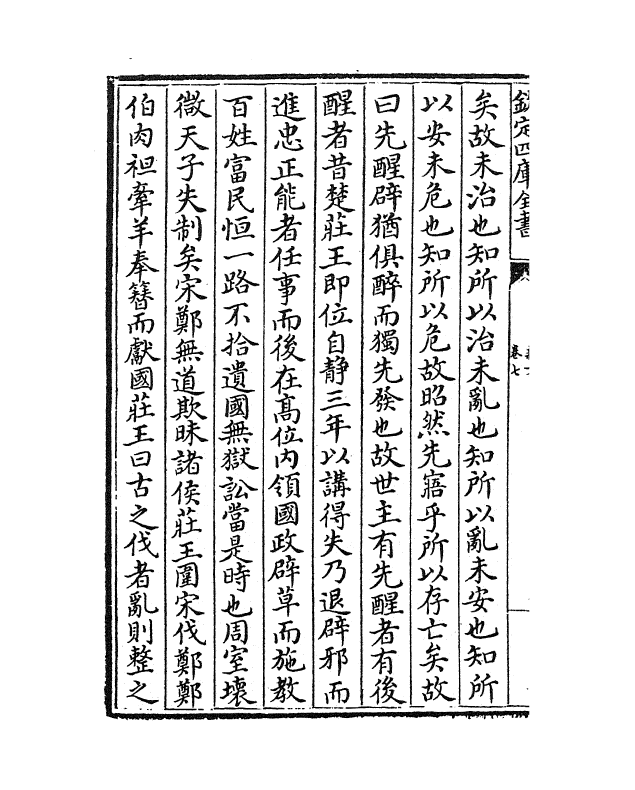 欽定四庫全書
卷七
矣故未治也知所以治未亂也知所以亂未安也知所
以安未危也知所以危故昭然先寤乎所以存亡矣故
曰先醒辟猶俱醉而獨先發也故世主有先醒者有後
醒者昔楚莊王即位自静三年以講得失乃退辟邪而
進忠正能者任事而後在髙位内領國政辟草而施教
百姓富民恒一路不拾遺國無獄訟當是時也周室壞
微天子失制矣宋鄭無道欺昧諸侯莊王圍宋伐鄭鄭
伯肉袒牽羊奉簪而獻國莊王曰古之伐者亂則整之